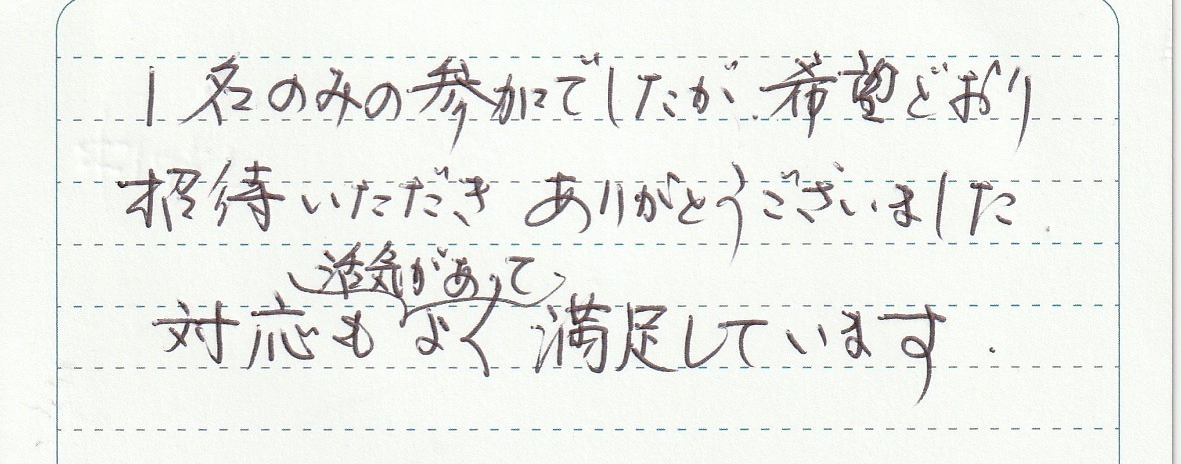 1名のみの参加でしたが、希望どおり
招待いただき ありがとうございました
活気があって
対応もよく 満足しています.